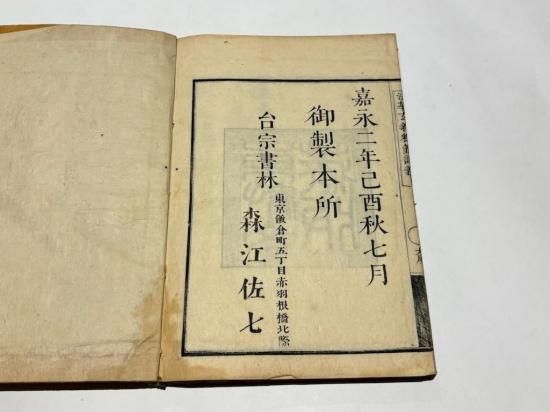 嘉永二年己酉秋七月
御製本所
東京飯倉町五丁目赤羽根橋北際
台宗書林 森江佐七